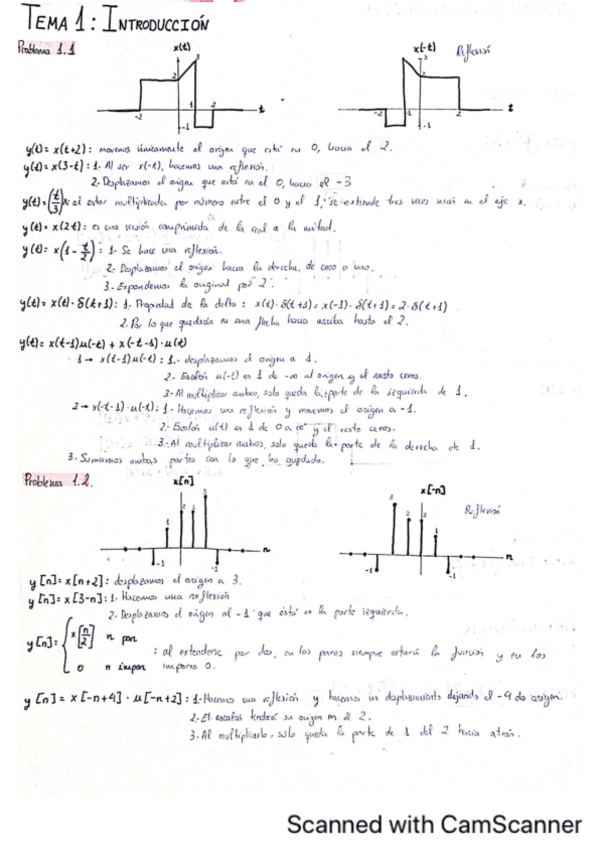 TEMA 1: INTRODUCCIÓN
Problema 1.1
x(t)
x(-t)
Reflexión
y(t)= x(t+2): movemos únicamente el origen que está en 0, hacia el 2.
y(t)= x(3-t): 1- Al ser x(-t), hacemos una reflexión.
2- Desplazamos el origen que está en el 0, hacia el -3
y(t)= x(t/3): al estar multiplicada por número entre el 0 y el 1, se extiende tres veces más en el eje x.
y(t)= x(2t): es una versión comprimida de la real a la mitad.
y(t)= x(1 - t/2): 1- Se hace una reflexión.
2- Desplazamos el origen hacia la derecha, de cero a uno.
3- Expandemos la original por 2.
y(t)= x(t)·δ(t+1): 1- Propiedad de la delta: x(t)·δ(t+1)= x(-1)·δ(t+1)= 2·δ(t+1)
2. Por lo que quedaría en una flecha hacia arriba hasta el 2.
y(t)= x(t-1)u(-t) + x(-t-1)·u(t)
1→ x(t-1)u(-t): 1.- desplazamos el origen a 1.
2- Escalón u(-t) es 1 de -∞ al origen y el resto ceros.
3- Al multiplicar ambos, solo queda la parte de la izquierda de 1.
2→ x(-t-1)·u(-t): 1- Hacemos una reflexión y movemos el origen a -1.
2- Escalón u(t) es 1 de 0 a ∞ y el resto ceros.
3- Al multiplicar ambos, solo queda la parte de la derecha de 1.
3- Sumamos ambas partes con lo que ha quedado.
Problema 1.2.
x[n]
x[-n]
Reflexión
y[n]= x[n+2]: desplazamos el origen a 3.
y[n]= x[3-n]: 1- Hacemos una reflexión
2- Desplazamos el origen al -1 que está en la parte izquierda.
y[n]= { x[n/2] n par
0 n impar
: al extenderse por dos, en los pares siempre estará la función y en los
impares 0.
y[n]= x[-n+4]·u[-n+2]: 1- Hacemos una reflexión y hacemos un desplazamiento dejando el -4 de origen.
2- El escalón tendrá su origen en el 2.
3- Al multiplicarlo, solo queda la parte de 1 del 2 hacia atrás.
Scanned with CamScanner